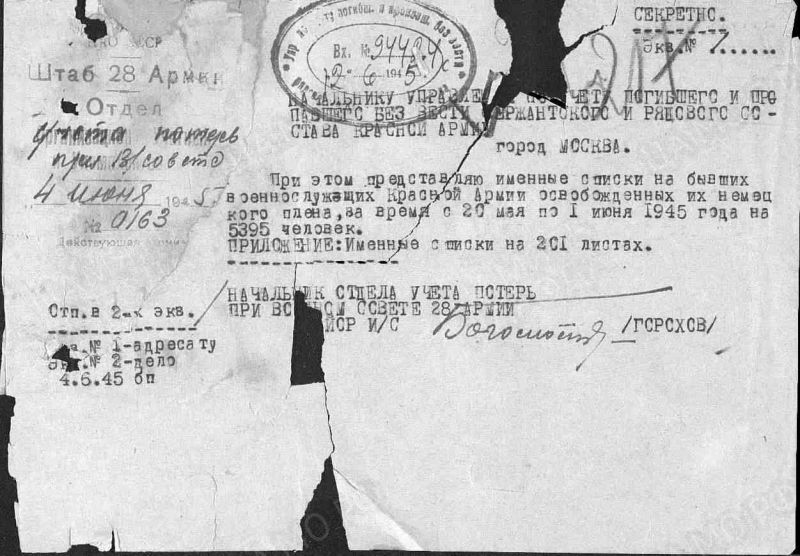 НКО СССР
Штаб 28 Армии
Отдел
учета потерь
при В/совете
4 июня 1945
№ 0163
Действующая армия
Вх. № 94484с
"2" 6 1945
СЕКРЕТНО.
Экз.№ 1
НАЧАЛЬНИКУ УПРАВЛЕ ПО УЧЕТУ ПОГИБШЕГО И ПРО
ПАВШЕГО БЕЗ ВЕСТИ ЕРЖАНТСКОГО И РЯДОВОГО СО-
СТАВА КРАСНОЙ АРМИ
город МОСКВА.
При этом представляю именные списки на бывших
военнослужащих Красной Армии освобожденных их немец
кого плена,за время с 20 мая по I июня 1945 года на
5395 человек.
ПРИЛОЖЕНИЕ:Именные списки на 201 листах.
НАЧАЛЬНИК ОТДЕЛА УЧЕТА ПОТЕРЬ
ПРИ ВО НОМ СОВЕТЕ 28 АРМИИ
ЙОР И/С /ГОРОХОВ/
Отп.в 2-х экз.
Экз.№ 1-адресату
Экз.№ 2-дело
4.6.45 бп